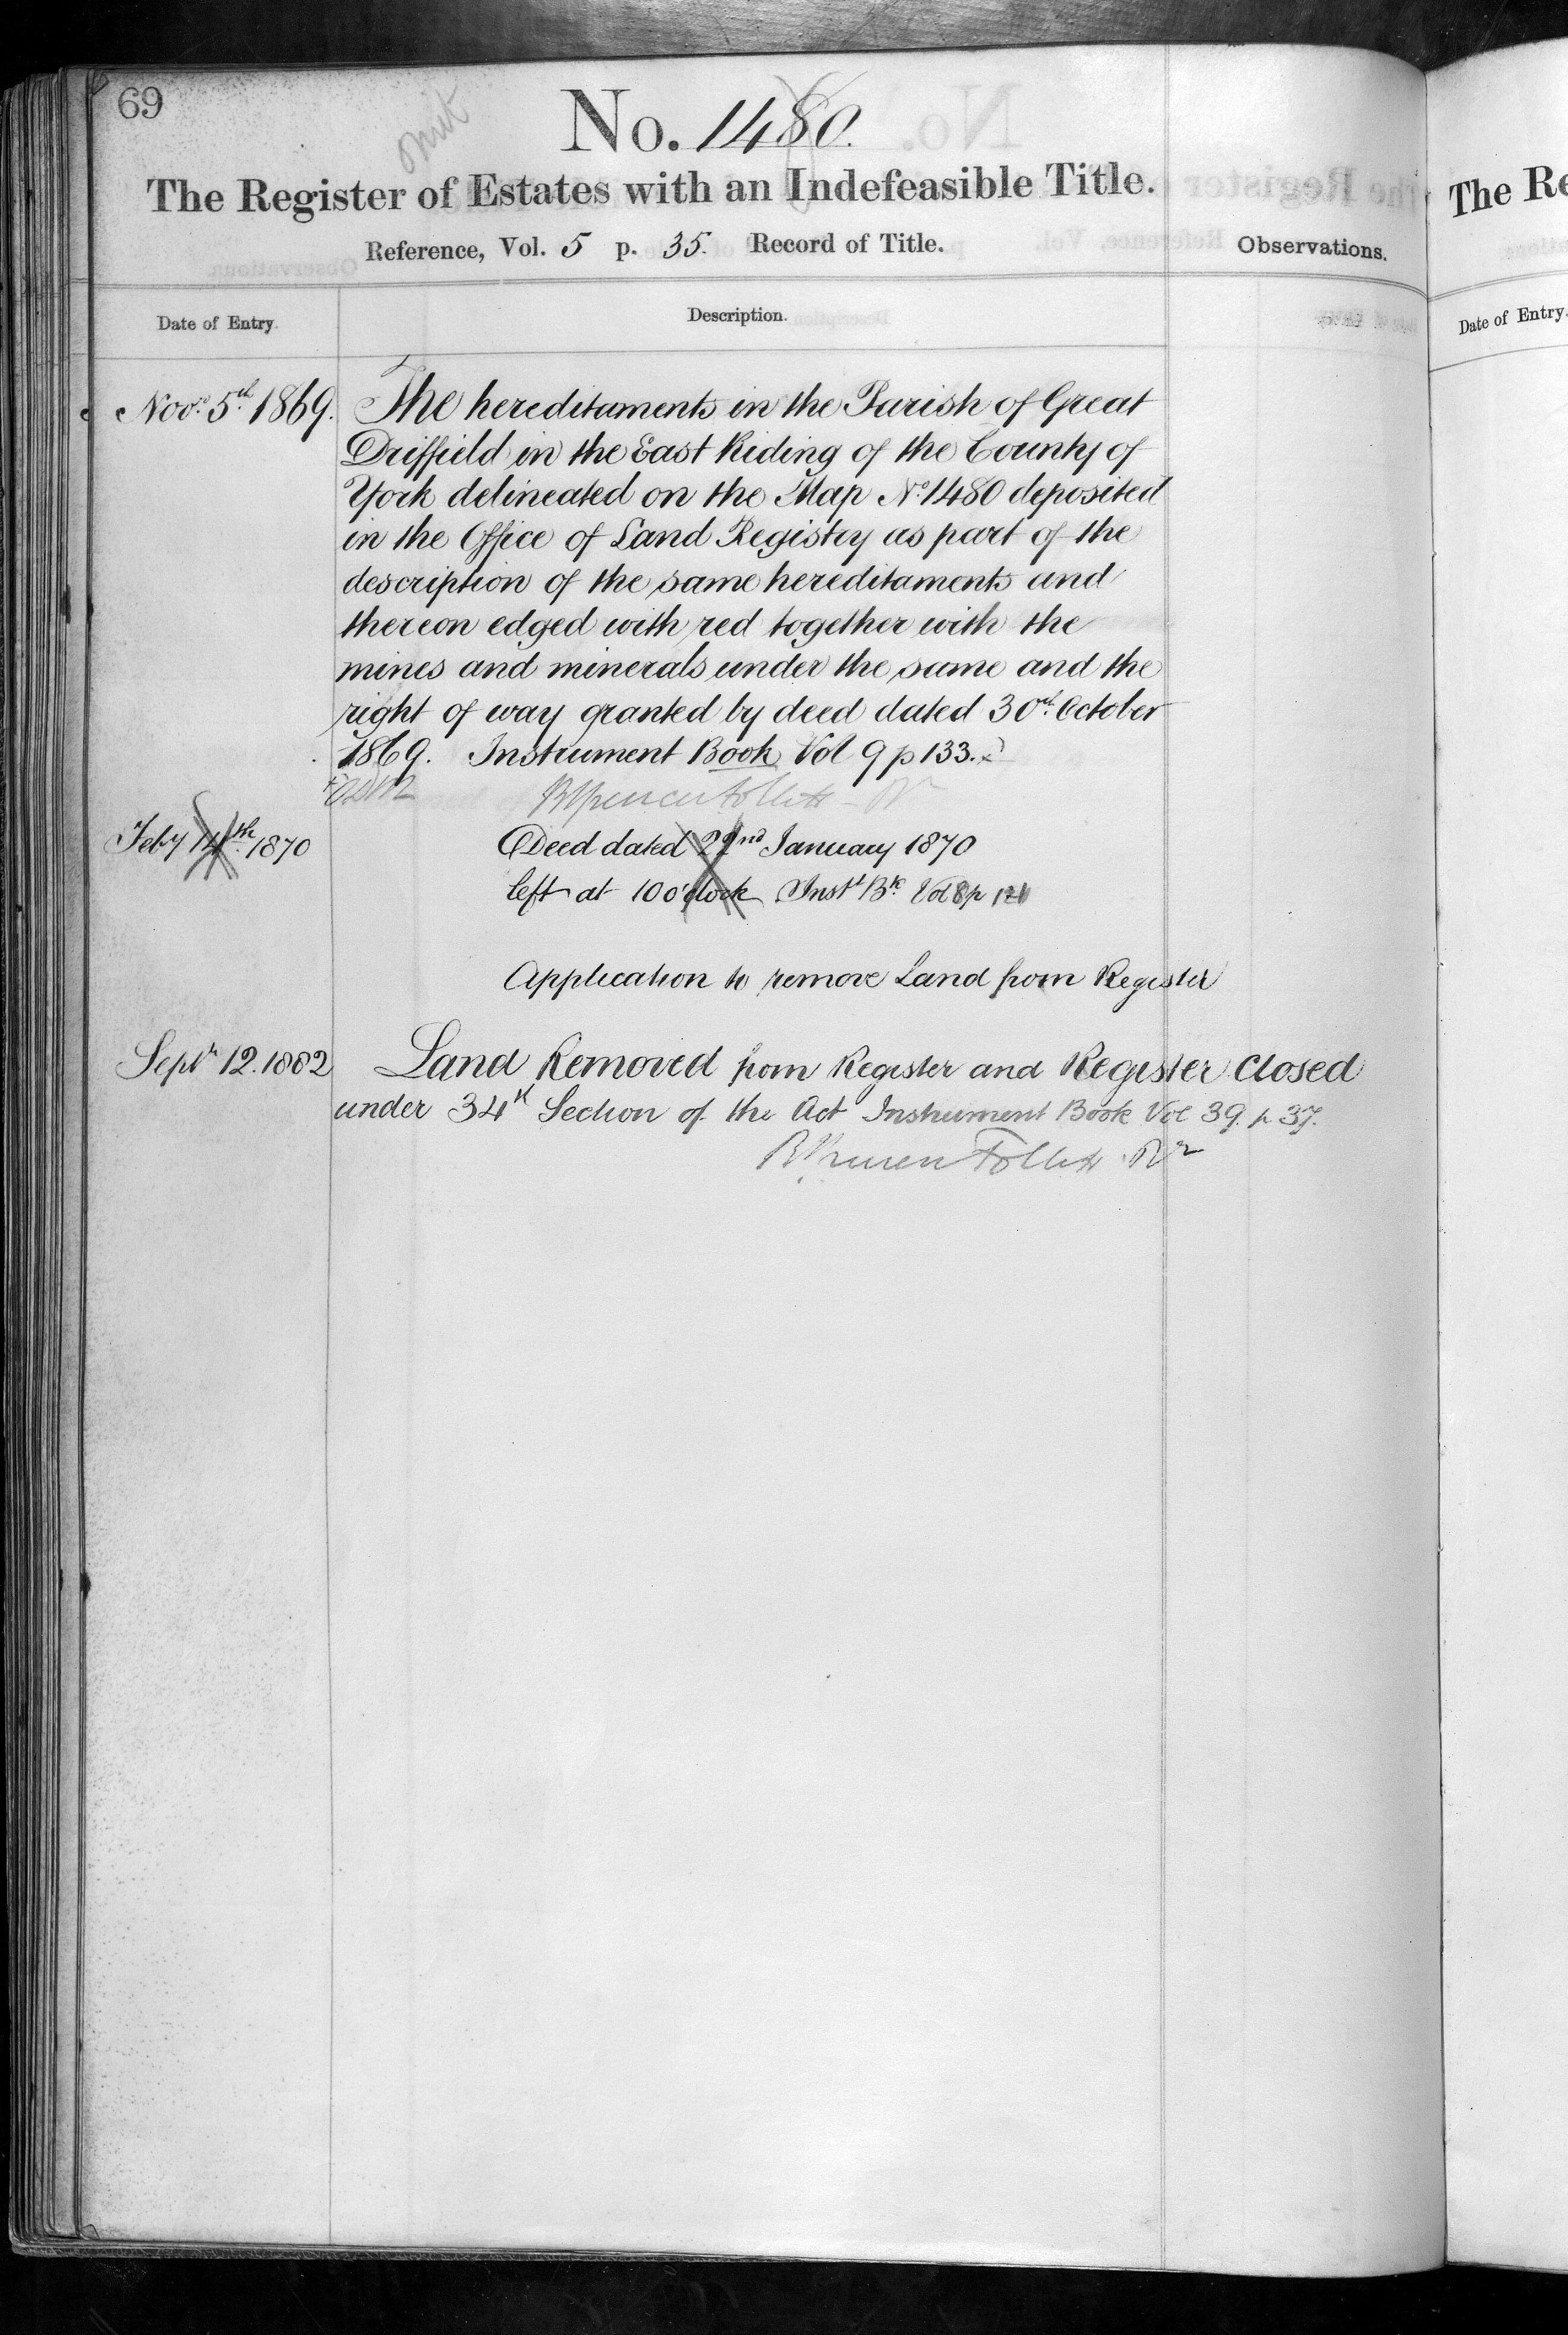 69
omit
No. 1480.
The Register of Estates with an Indefeasible Title.
Reference, Vol. 5 p. 35. Record of Title.
Observations.
Date of Entry.
Description.
Novr. 5th 1869. The hereditaments in the Parish of Great
Driffield in the East Riding of the County of
York delineated on the Map No. 1480 deposited
in the Office of Land Registry as part of the
description of the same hereditaments and
thereon edged with red together with the
mines and minerals under the same and the
right of way granted by deed dated 30th October
1869. Instrument Book Vol 9 p 133.
BSpencer Follett Rr
Feby 14th 1870 Deed dated 22nd January 1870
left at 10 o'clock Inst Bk Vol 8 p
Application to remove Land from Register
Septr 12. 1882 Land Removed from Register and Register Closed
under 34th Section of the Act Instrument Book Vol 39. p 37.
BSpencer Follett Rr
The Re
Date of Entry.